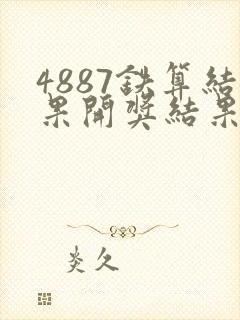 4887鉄算結
果開奨結果
炎久